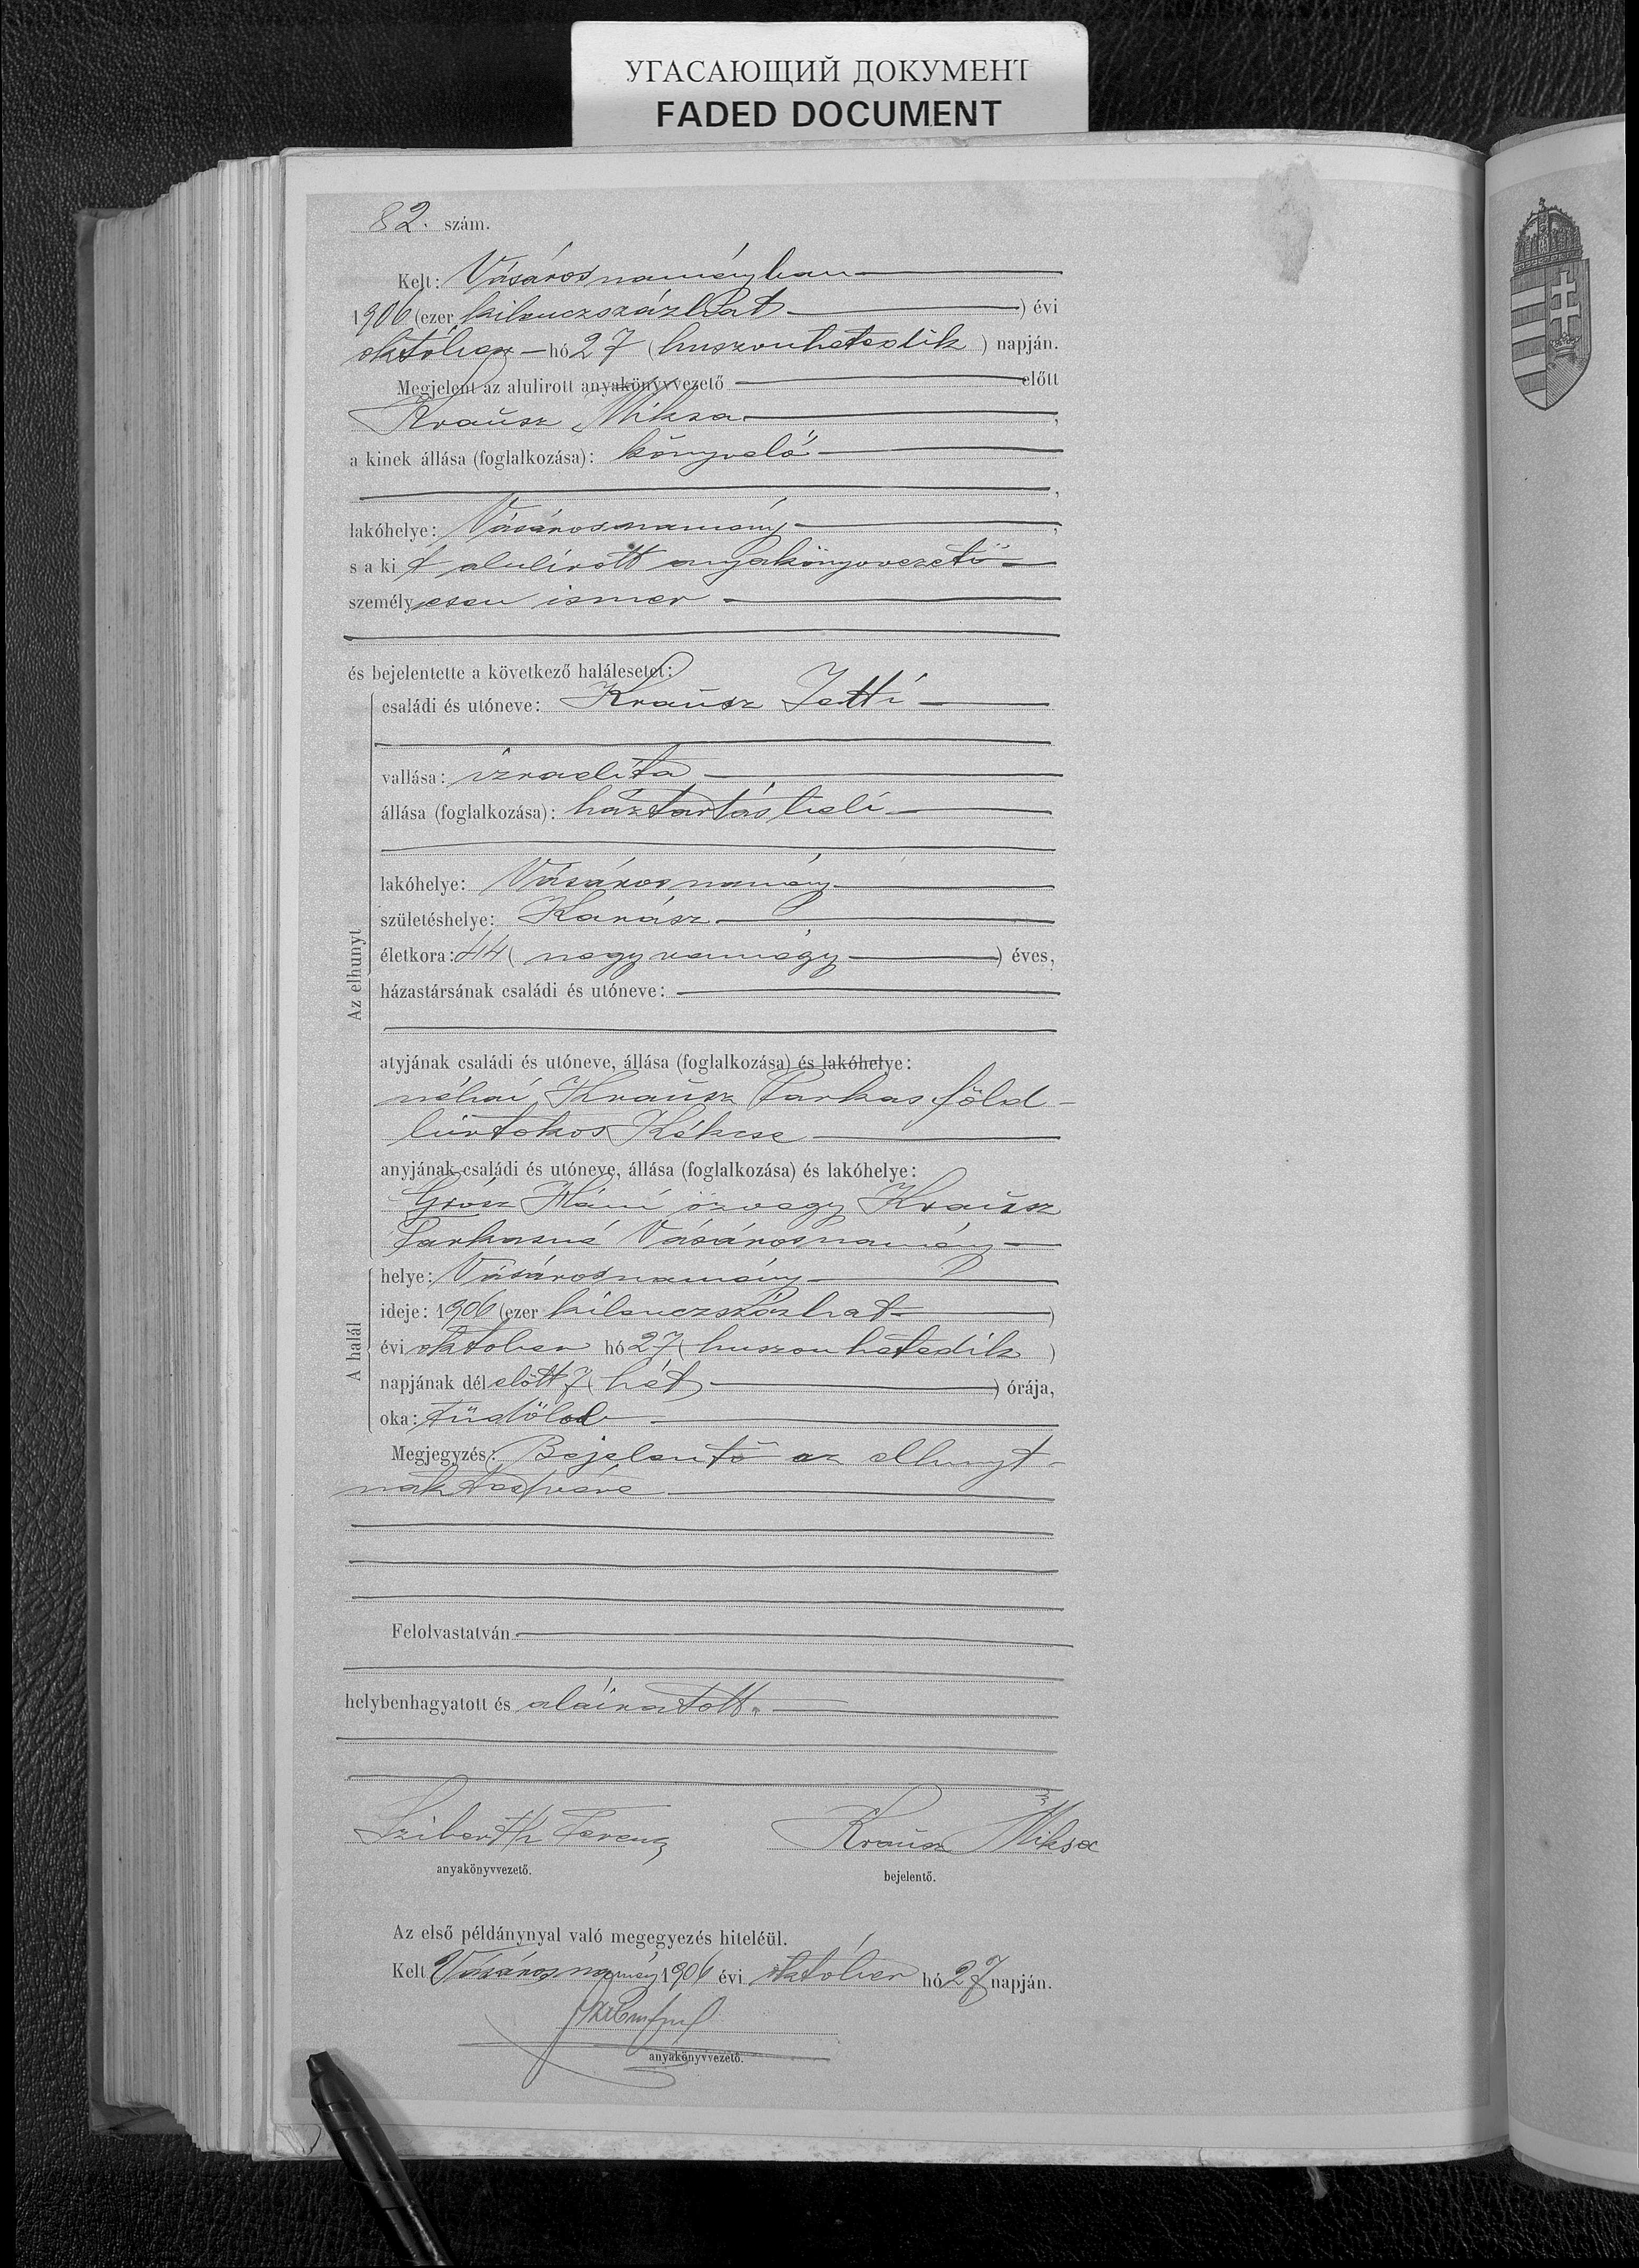 УГАСАЮЩИЙ ДОКУМЕНТ
FADED DOCUMENT
82. szám.
Kelt: Vásárosnaményban
1906 (ezer kilenczszázhat) évi
október hó 27 (huszonhetedik) napján.
Megjelent az alulirott anyakönyvvezető előtt
Krausz Miksa,
a kinek állása (foglalkozása): könyvelő
,
lakóhelye: Vásárosnamény,
s a kit alulírott anyakönyvvezető
személyesen ismer
és bejelentette a következő halálesetet:
Az elhunyt
családi és utóneve: Krausz Jetti
vallása: izraelita
állása (foglalkozása): háztartásbeli
lakóhelye: Vásárosnamény
születéshelye: Karász
életkora: 44 (negyvennégy) éves,
házastársának családi és utóneve:
atyjának családi és utóneve, állása (foglalkozása) és lakóhelye:
néhai Krausz Farkas föld-
birtokos Kékcse
anyjának családi és utóneve, állása (foglalkozása) és lakóhelye:
Grósz Háni özvegy Krausz
Farkasné Vásárosnamény
A halál
helye: Vásárosnamény
ideje: 1906 (ezer kilenczszázhat)
évi október hó 27 (huszonhetedik)
napjának dél előtt 7 (hét) órája,
oka: tüdőlob
Megjegyzés: Bejelentő az elhunyt-
nak testvére
Felolvastatván
helybenhagyatott és aláiratott.
Sziberth Ferencz Krausz Miksa
anyakönyvvezető. bejelentő.
Az első példánynyal való megegyezés hiteléül.
Kelt Vásárosnamény 1906 évi október hó 27 napján.
anyakönyvvezető.